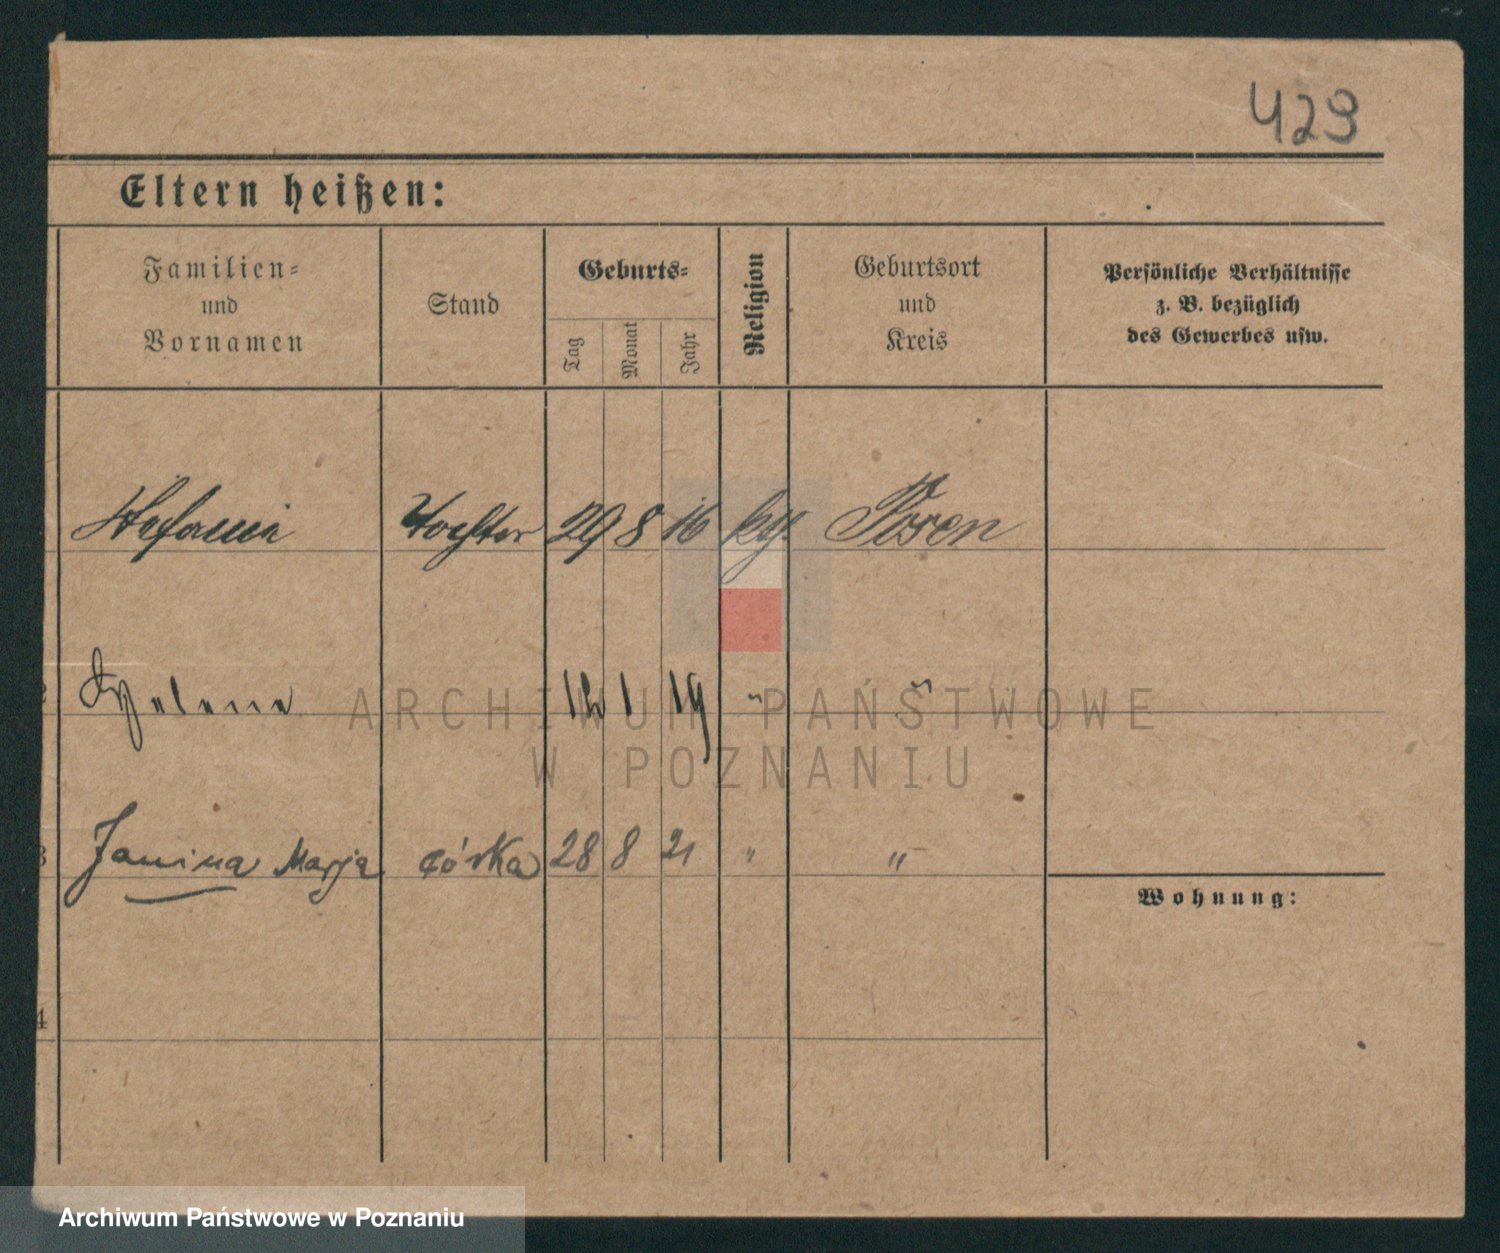 429
Eltern heißen:
Familien= und Vornamen
Stand
Geburts=
Tag
Monat
Jahr
Religion
Geburtsort und Kreis
Persönliche Verhältnisse
z. B. bezüglich
des Gewerbes usw.
Stefania Tochter 29 8 16 Posen
2 Helene 1 19 " "
ARCHIWUM PAŃSTWOWE
W POZNANIU
3 Janina Marja córka 28 8 21 " "
Wohnung:
4
Archiwum Państwowe w Poznaniu